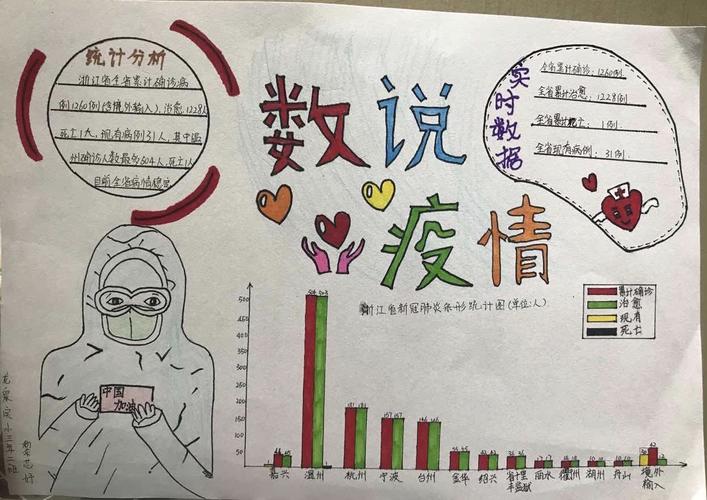 统计分析
浙江省全省累计确诊病
例1260例(含境外输入),治愈1228人
死亡1人,现有病例31人,其中温
州确诊人数最多504人,死亡1人
目前全省病情稳定
数说
疫情
实时数据
全省累计确诊:1260例
全省累计治愈:1228例
全省累计死亡:1例
全省现有病例:31例
浙江省新冠肺炎条形统计图(单位:人)
累计确诊
治愈
现有
死亡
500
450
400
350
300
250
200
150
100
50
0
504 503
181 181
157 157
146 146
嘉兴 温州 杭州 宁波 台州 金华 绍兴 省十里丰监狱 丽水 衢州 湖州 舟山 境外输入
中国
加油